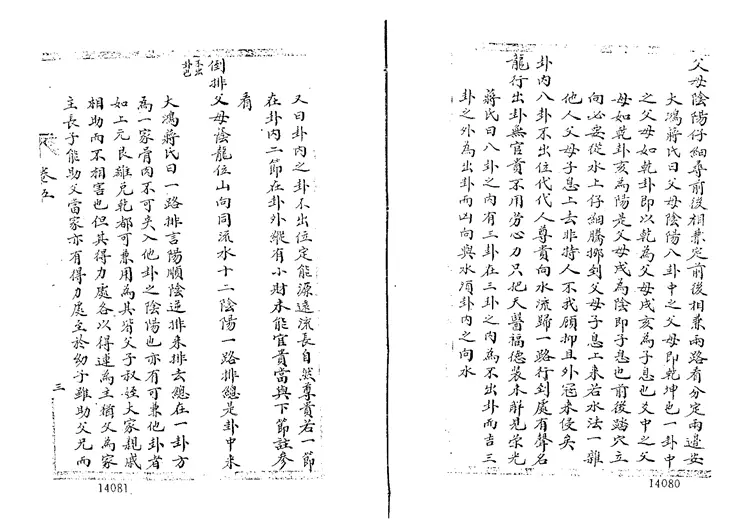 父母陰陽仔細尋前後相兼定前後相兼兩路看分定兩邊安
大鴻蔣氏曰父母陰陽八卦中之父母即乾坤也一卦中
之父母如乾卦即以乾為父母戌亥為子息也爻中之父
母如乾卦亥為陽是父母戌為陰即子息也前後踏穴立
向必安從水上仔細騰挪到父母子息上來若水法一雜
他人父母子息上去非特人不我顧抑且外冠來侵矣
卦內八卦不出位代代人尊貴向水流歸一路行到處有聲名
龍行出卦無官貴不用勞心力只把天醫福德裝未解見榮光
蔣氏曰八卦之內有三卦在三卦之內為不出卦而吉三
卦之外為出卦而凶向與水須卦內之向水
14080
又曰卦內之卦不出位定能源遠流長自然尊貴若一節
在卦內二節在卦外縱有小財未能官貴當與下節註參
看
倒排父母蔭龍位山向同流水十二陰陽一路排總是卦中來
不出卦也
大鴻蔣氏曰一路排言陽順陰逆排來排去總在一卦方
為一家骨肉不可夾入他卦之陰陽也亦有可兼他卦者
如上元艮離兑乾都可兼用為其皆父子叔姪大家親戚
相助而不相害也但其得力處各以得運為主猶父為家
主長子能助父當家亦有得力處至於幼子雖助父兄而
卷五
三
14081